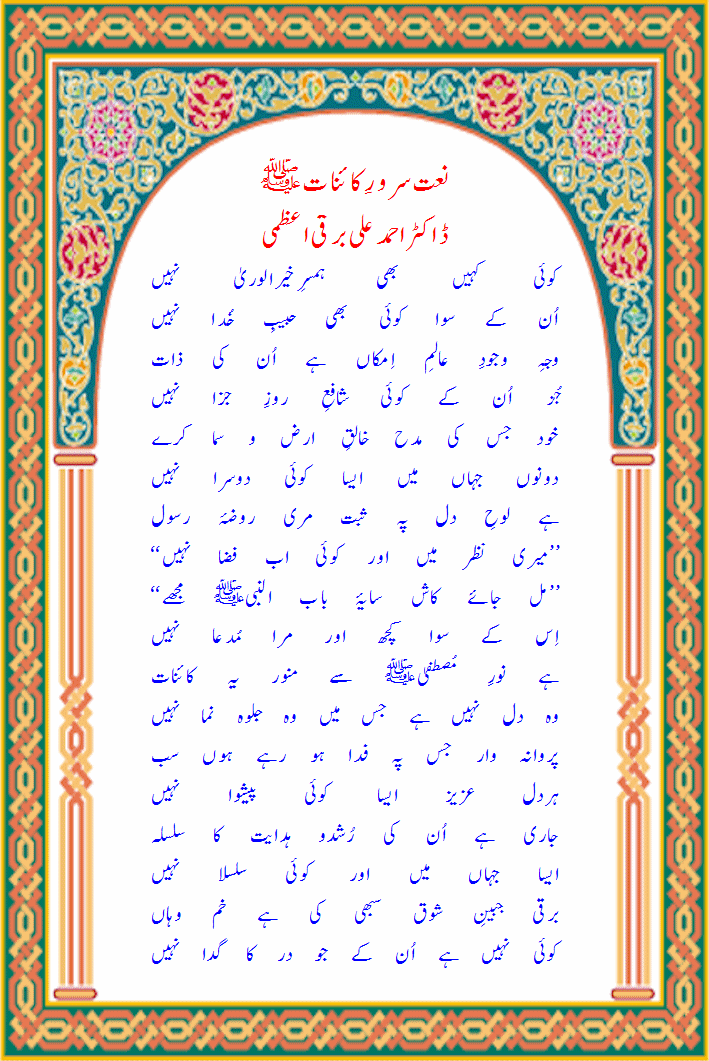 نعت سرورِ کائنات ﷺ
ڈاکٹر احمد علی برقی اعظمی
کوئی کہیں بھی ہمسرِ خیرالوریٰ نہیں
اُن کے سوا کوئی بھی حبیبِ خُدا نہیں
وجہِ وجودِ عالمِ اِمکاں ہے اُن کی ذات
جُز اُن کے کوئی شافعِ روزِ جزا نہیں
خود جس کی مدح خالقِ ارض و سما کرے
دونوں جہاں میں ایسا کوئی دوسرا نہیں
ہے لوحِ دل پہ ثبت مری روضۂ رسول
’’میری نظر میں اور کوئی اب فضا نہیں‘‘
’’مل جائے کاش سایۂ باب النبیﷺ مجھے‘‘
اِس کے سوا کچھ اور مرا مُدعا نہیں
ہے نورِ مُصطفیٰﷺ سے منور یہ کائنات
وہ دل نہیں ہے جس میں وہ جلوہ نما نہیں
پروانہ وار جس پہ فدا ہو رہے ہوں سب
ہردل عزیز ایسا کوئی پیشوا نہیں
جاری ہے اُن کی رُشدو ہدایت کا سلسلہ
ایسا جہاں میں اور کوئی سلسلا نہیں
برقی جبینِ شوق سبھی کی ہے خم وہاں
کوئی نہیں ہے اُن کے جو در کا گدا نہیں